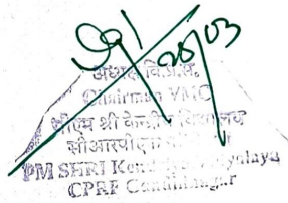 20/03
अध्यक्ष वि.प्र.स.
Chairman VMC
पीएम श्री केन्द्रीय विद्यालय
सीआरपीएफ
PM SHRI Kendriya Vidyalaya
CPRF Gandhinagar